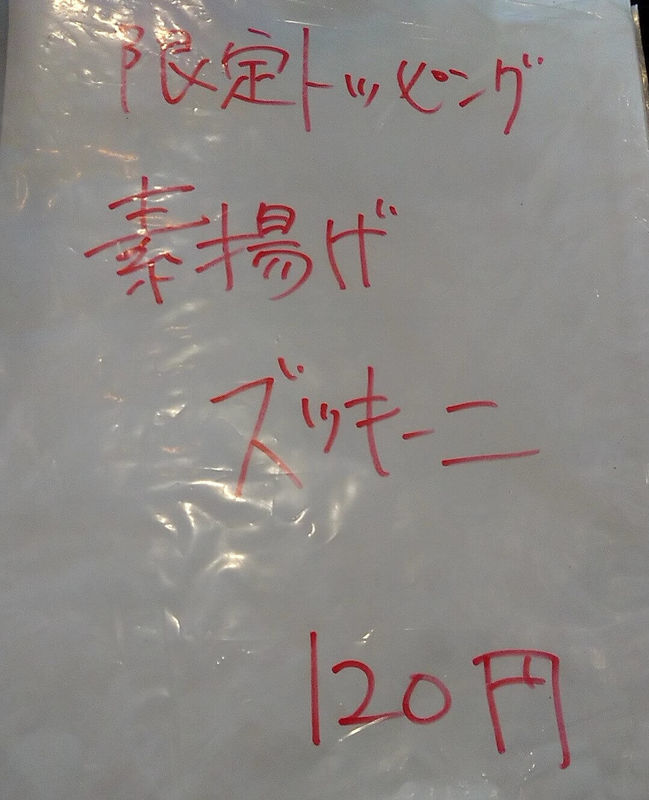 限定トッピング
素揚げ
ズッキーニ
120円